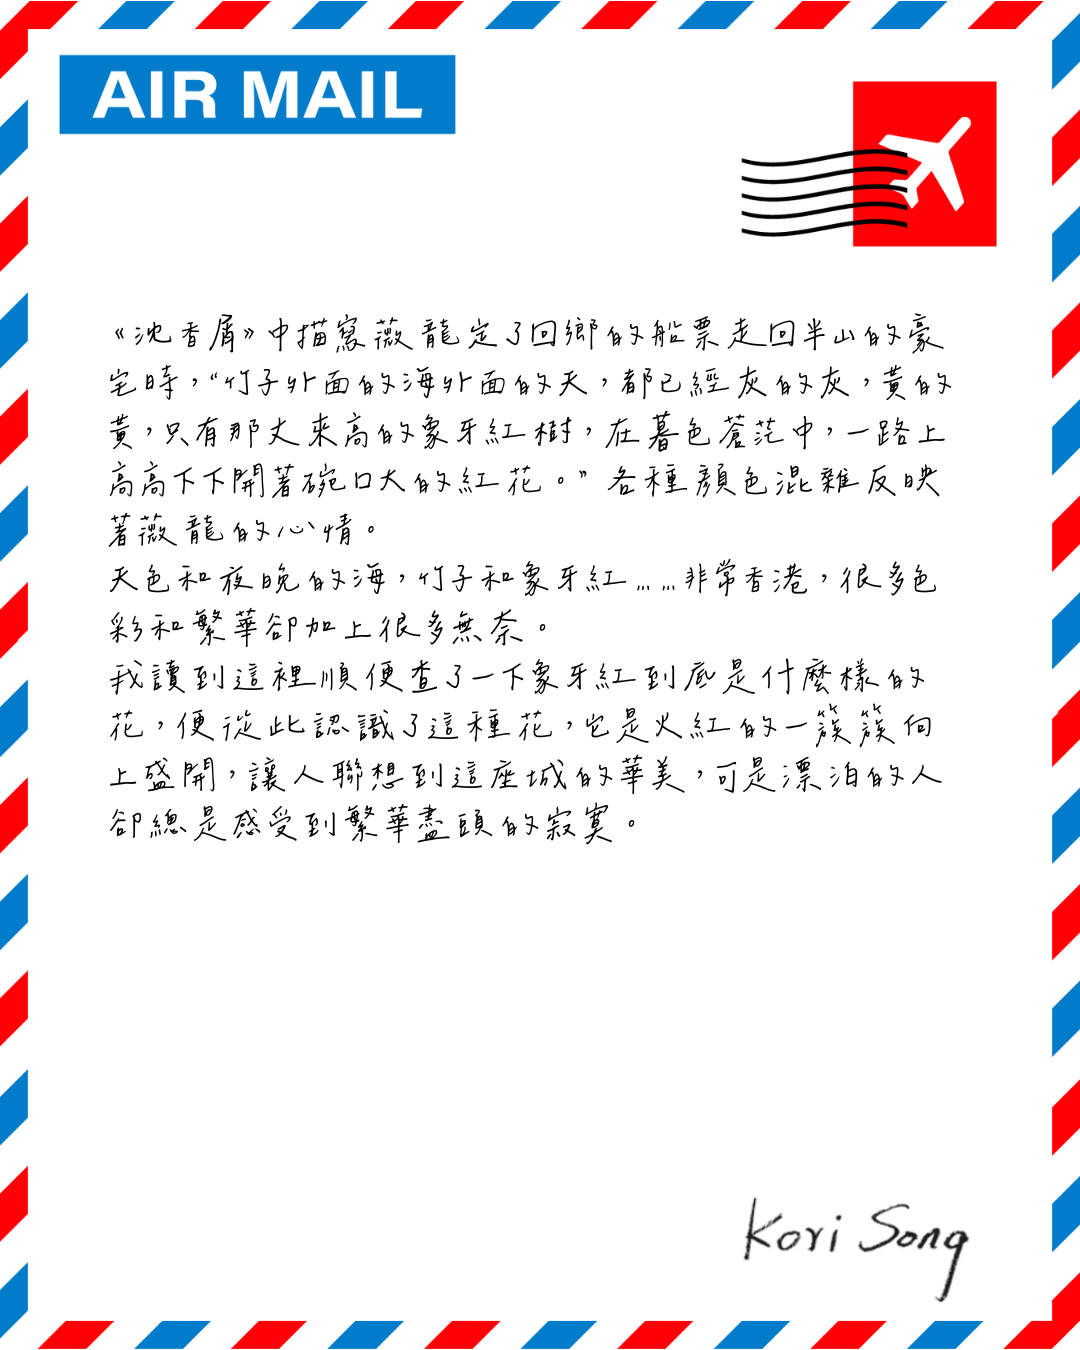 AIR MAIL
《沈香屑》中描寫薇龍定了回鄉的船票走回半山的豪
宅時，“竹子外面的海外面的天，都已經灰的灰，黃的
黃，只有那丈來高的象牙紅樹，在暮色蒼茫中，一路上
高高下下開著碗口大的紅花。”各種顏色混雜反映
著薇龍的心情。
天色和夜晚的海，竹子和象牙紅……非常香港，很多色
彩和繁華卻加上很多無奈。
我讀到這裡順便查了一下象牙紅到底是什麼樣的
花，便從此認識了這種花，它是火紅的一簇簇向
上盛開，讓人聯想到這座城的華美，可是漂泊的人
卻總是感受到繁華盡頭的寂寞。
Kori Song